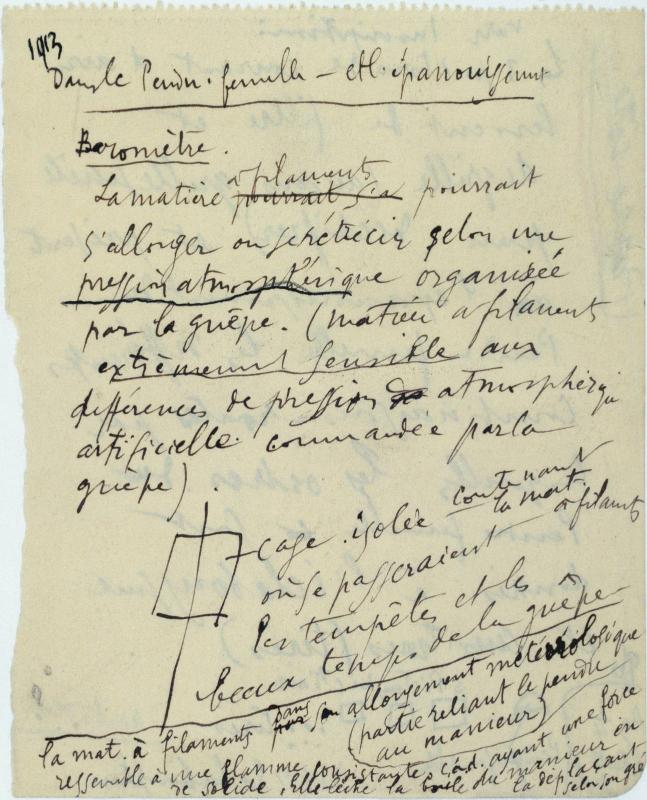 1913
Dans le Pendu. femelle – et l'épanouissement
Baromètre.
à filaments
La matière pourrait s'a pourrait
s'allonger ou se rétrécir selon une
pression atmosphérique organisée
par la guêpe. (matière à filaments
extrêmement sensible aux
différences de pression de atmosphériq
artificielle. commandée par la
guêpe).
cage isolée contenant
la mat. à filaments
où se passeraient
les tempêtes et les
beaux temps de la guêpe
La mat. à filaments dans son allongement météorologique
(partie reliant le pendu
au manieur)
ressemble à une flamme consistante, c.à.d. ayant une force
de solide. Elle lèche la boule du manieur en
la déplaçant
selon son gré